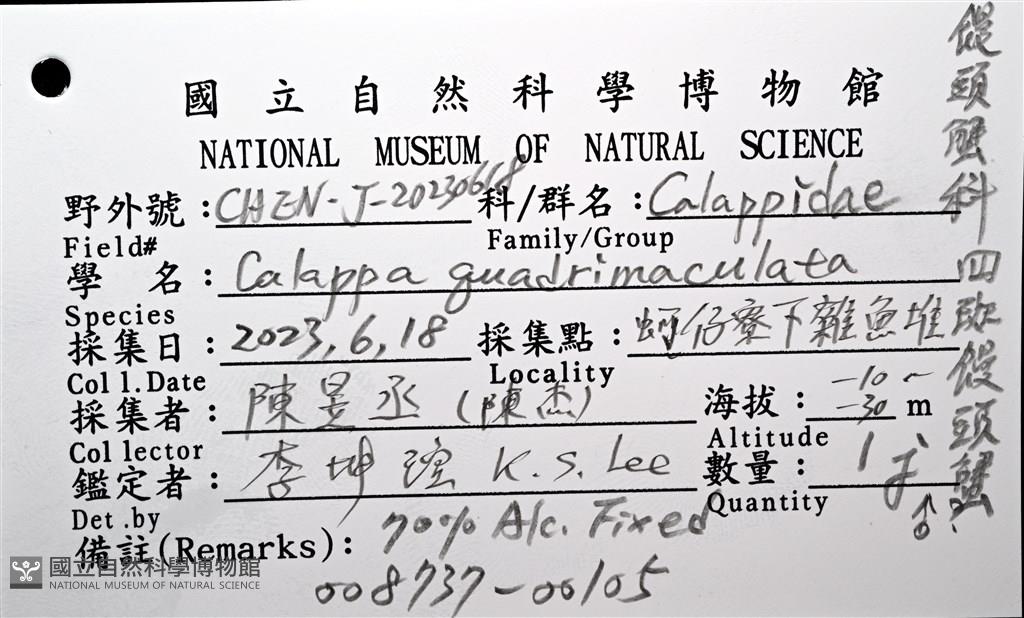 國立自然科學博物館
NATIONAL MUSEUM OF NATURAL SCIENCE
野外號：CHEN-J-20230618 科/群名：Calappidae
Field# Family/Group
學名：Calappa quadrimaculata
Species
採集日：2023,6,18 採集點：蚵仔寮下雜魚堆
Coll.Date Locality
採集者：陳昱丞（陳杰） 海拔：-10~-30 m
Collector Altitude
鑑定者：李坤瑄 K.S. Lee 數量：1
Det.by Quantity
備註(Remarks)：70% Alc. Fixed
008737-00105
饅頭蟹科四斑饅頭蟹
♂?
國立自然科學博物館
NATIONAL MUSEUM OF NATURAL SCIENCE